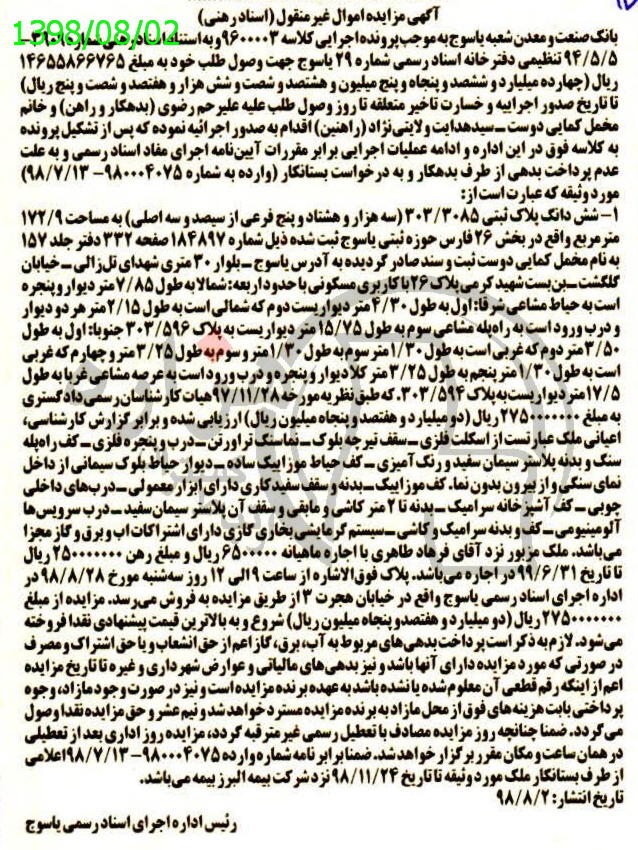 1398/08/02
آگهی مزایده اموال غیر منقول (اسناد رهنی)
بانک صنعت و معدن شعبه یاسوج به موجب پرونده اجرایی کلاسه ۹۶۰۰۰۰۳ و به استناد اسناد رهنی شماره
۹۴/۵/۵ تنظیمی دفترخانه اسناد رسمی شماره ۲۹ یاسوج جهت وصول طلب خود به مبلغ ۱۴۶۵۵۸۶۶۷۶۵
ریال (چهارده میلیارد و ششصد و پنجاه و پنج میلیون و هشتصد و شصت و شش هزار و هفتصد و شصت و پنج ریال)
تا تاریخ صدور اجراییه و خسارت تاخیر متعلقه تا روز وصول طلب علیه علیرحم رضوی (بدهکار و راهن) و خانم
مخمل کمایی دوست ـ سیدهدایت ولایتی‌نژاد (راهنین) اقدام به صدور اجرائیه نموده که پس از تشکیل پرونده
به کلاسه فوق در این اداره و ادامه عملیات اجرایی برابر مقررات آیین‌نامه اجرای مفاد اسناد رسمی و به علت
عدم پرداخت بدهی از طرف بدهکار و به درخواست بستانکار (وارده به شماره ۹۸۰۰۰۴۰۷۵- ۹۸/۷/۱۳)
مورد وثیقه که عبارت است از:
۱- شش دانگ پلاک ثبتی ۳۰۳/۳۰۸۵ (سه هزار و هشتاد و پنج فرعی از سیصد و سه اصلی) به مساحت ۱۷۲/۹
متر مربع واقع در بخش ۲۶ فارس حوزه ثبتی یاسوج ثبت شده ذیل شماره ۱۸۴۸۹۷ صفحه ۳۳۲ دفتر جلد ۱۵۷
به نام مخمل کمایی دوست ثبت و سند صادر گردیده به آدرس یاسوج ـ بلوار ۳۰ متری شهدای تل‌زالی ـ خیابان
گلگشت ـ بن‌بست شهید کرمی پلاک ۲۶ با کاربری مسکونی با حدود اربعه: شمالا به طول ۷/۸۵ متر دیوار و پنجره
است به حیاط مشاعی شرقا: اول به طول ۴/۳۰ متر دیواریست دوم که شمالی است به طول ۲/۱۵ متر هر دو دیوار
و درب ورود است به راه‌پله مشاعی سوم به طول ۱۵/۷۵ متر دیواریست به پلاک ۳۰۳/۵۹۶ جنوبا: اول به طول
۳/۵۰ متر دوم که غربی است به طول ۱/۳۰ متر سوم به طول ۱/۳۰ متر و سوم به طول ۳/۲۵ متر و چهارم که غربی
است به طول ۱/۳۰ متر پنجم به طول ۳/۲۵ متر کلا دیوار و پنجره و درب ورود است به عرصه مشاعی غربا به طول
۱۷/۵ متر دیواریست به پلاک ۳۰۳/۵۹۴. که طبق نظریه مورخه ۹۷/۱۱/۲۸ هیات کارشناسان رسمی دادگستری
به مبلغ ۲۷۵۰۰۰۰۰۰۰ ریال (دو میلیارد و هفتصد و پنجاه میلیون ریال) ارزیابی شده و برابر گزارش کارشناسی،
اعیانی ملک عبارتست از اسکلت فلزی ـ سقف تیرچه بلوک ـ نماسنگ تراورتن ـ درب و پنجره فلزی ـ کف راه‌پله
سنگ و بدنه پلاستر سیمان سفید و رنگ‌آمیزی ـ کف حیاط موزاییک ساده ـ دیوار حیاط بلوک سیمانی از داخل
نمای سنگی و از بیرون بدون نما. کف موزاییک ـ بدنه و سقف سفیدکاری دارای ابزار معمولی ـ درب‌های داخلی
چوبی ـ کف آشپزخانه سرامیک ـ بدنه تا ۲ متر کاشی و مابقی و سقف آن پلاستر سیمان سفید ـ درب سرویس‌ها
آلومینیومی ـ کف و بدنه سرامیک و کاشی ـ سیستم گرمایشی بخاری گازی دارای اشتراکات آب و برق و گاز مجزا
می‌باشد. ملک مزبور نزد آقای فرهاد طاهری با اجاره ماهیانه ۶۵۰۰۰۰۰ ریال و مبلغ رهن ۲۵۰۰۰۰۰۰۰ ریال
تا تاریخ ۹۹/۶/۳۱ در اجاره می‌باشد. پلاک فوق‌الاشاره از ساعت ۹ الی ۱۲ روز سه‌شنبه مورخ ۹۸/۸/۲۸ در
اداره اجرای اسناد رسمی یاسوج واقع در خیابان هجرت ۳ از طریق مزایده به فروش می‌رسد. مزایده از مبلغ
۲۷۵۰۰۰۰۰۰۰ ریال (دو میلیارد و هفتصد و پنجاه میلیون ریال) شروع و به بالاترین قیمت پیشنهادی نقدا فروخته
می‌شود. لازم به ذکر است پرداخت بدهی‌های مربوط به آب، برق، گاز اعم از حق انشعاب و یا حق اشتراک و مصرف
در صورتی که مورد مزایده دارای آنها باشد و نیز بدهی‌های مالیاتی و عوارض شهرداری و غیره تا تاریخ مزایده
اعم از اینکه رقم قطعی آن معلوم شده یا نشده باشد به عهده برنده مزایده است و نیز در صورت وجود مازاد، وجوه
پرداختی بابت هزینه‌های فوق از محل مازاد به برنده مزایده مسترد خواهد شد و نیم عشر و حق مزایده نقدا وصول
می‌گردد. ضمنا چنانچه روز مزایده مصادف با تعطیل رسمی غیرمترقبه گردد، مزایده روز اداری بعد از تعطیلی
در همان ساعت و مکان مقرر برگزار خواهد شد. ضمنا برابر نامه شماره وارده ۹۸۰۰۰۴۰۷۵- ۹۸/۷/۱۳ اعلامی
از طرف بستانکار ملک مورد وثیقه تا تاریخ ۹۸/۱۱/۲۴ نزد شرکت بیمه البرز بیمه می‌باشد.
تاریخ انتشار: ۹۸/۸/۲
رئیس اداره اجرای اسناد رسمی یاسوج